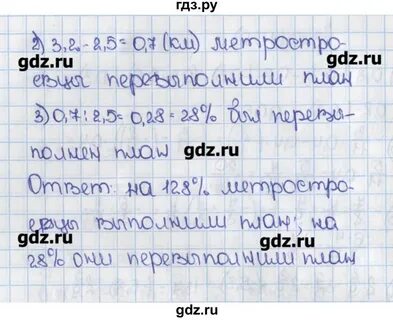 гдз.ру
2) 3,2 - 2,5 = 0,7 (км) метростро-
gdz.ru
gdz.ru
евцы перевыполнили план
3) 0,7 : 2,5 = 0,28 = 28% был перевы-
полнен план
gdz.ru
gdz.ru
Ответ: на 128% метростро-
евцы выполнили план; на
gdz.ru
gdz.ru
28% они перевыполнили план